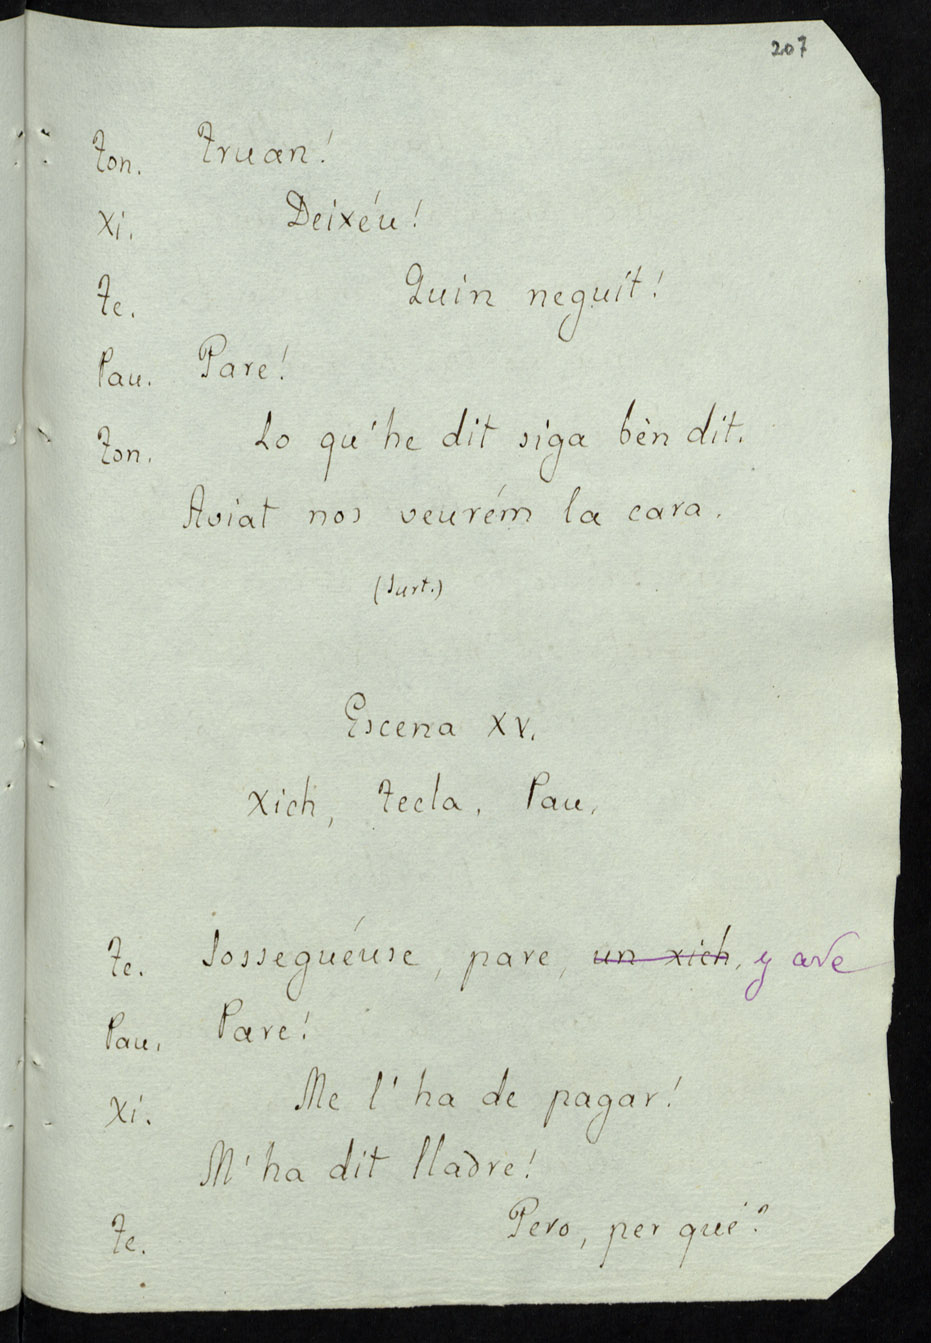 207
Ton. Truan!
Xi. Deixéu!
Te. Quin neguit!
Pau. Pare!
Ton. Lo qu'he dit siga bèn dit.
Aviat nos veurém la cara.
(Surt.)
Escena XV.
Xich, Tecla, Pau.
Te. Sosseguéuse, pare, un xich, y
Pau. Pare!
Xi. Me l'ha de pagar!
M'ha dit lladre!
Te. Pero, per qué?